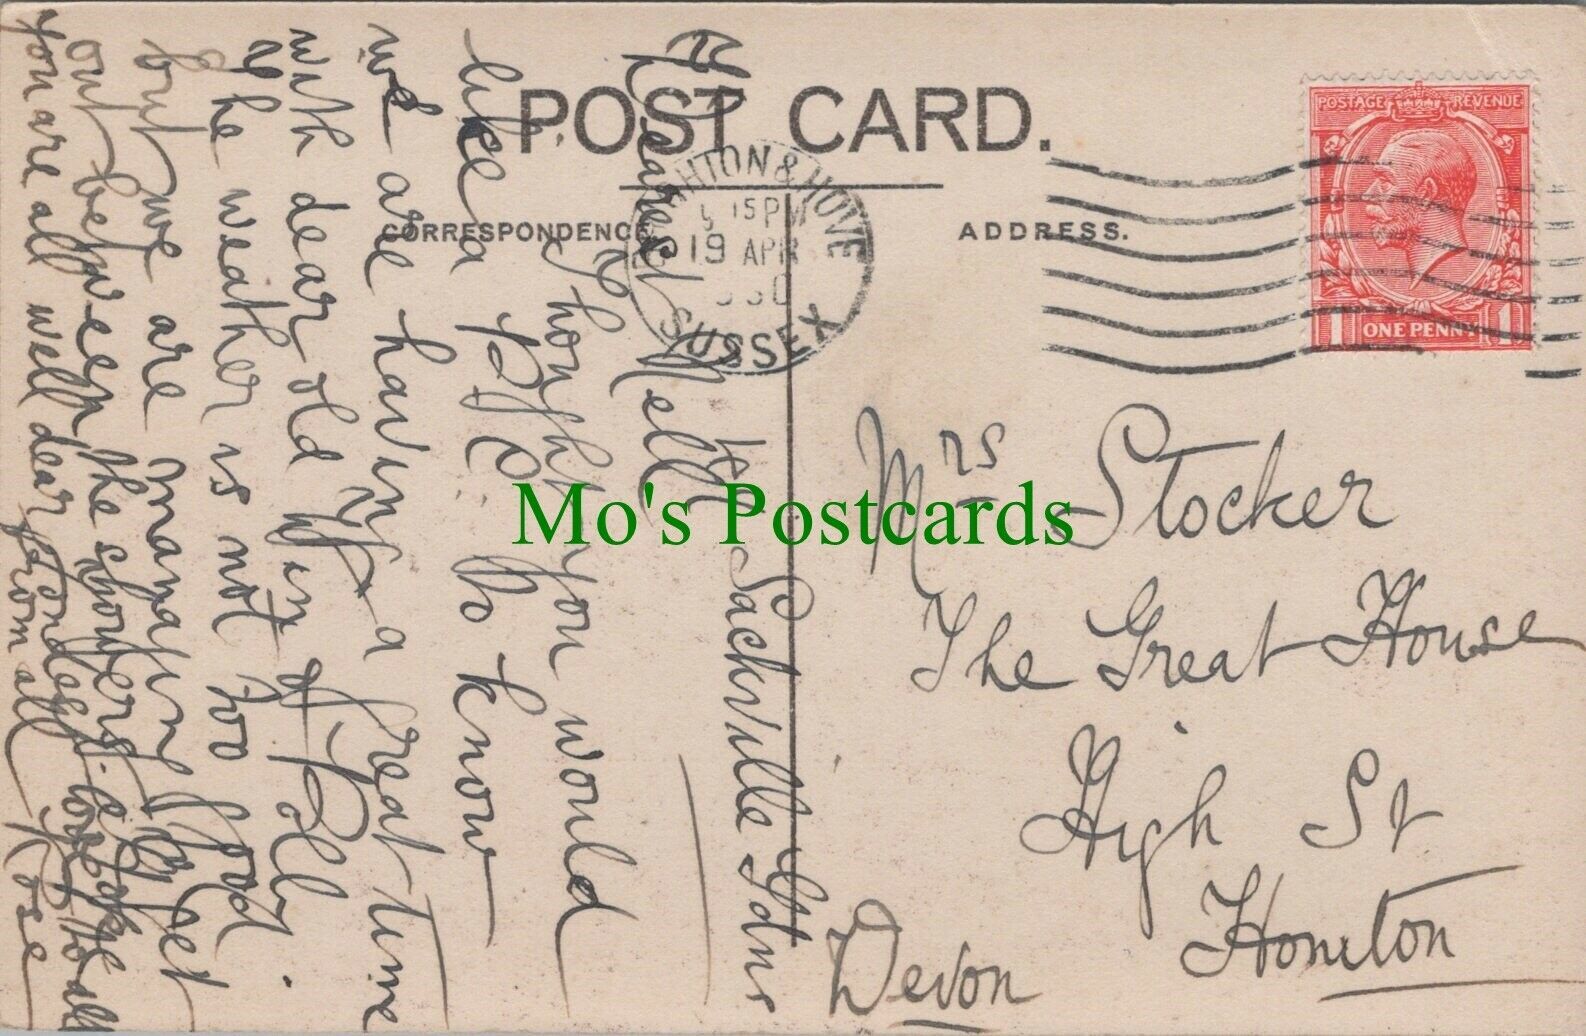 POST CARD.
CORRESPONDENCE
ADDRESS.
HTON & HOVE
15 PM
19 APR
SUSSEX
POSTAGE REVENUE
1 ONE PENNY 1
Mo's Postcards
Mrs Stocker
The Great House
High St
Honiton
Devon
Sackville Gdns
Dearest Nell
I thought you would
like a P/C to know
we are having a great time
with dear old
The weather is not too good
but we are managing to get
out between the showers
you are all well dear from all Rose